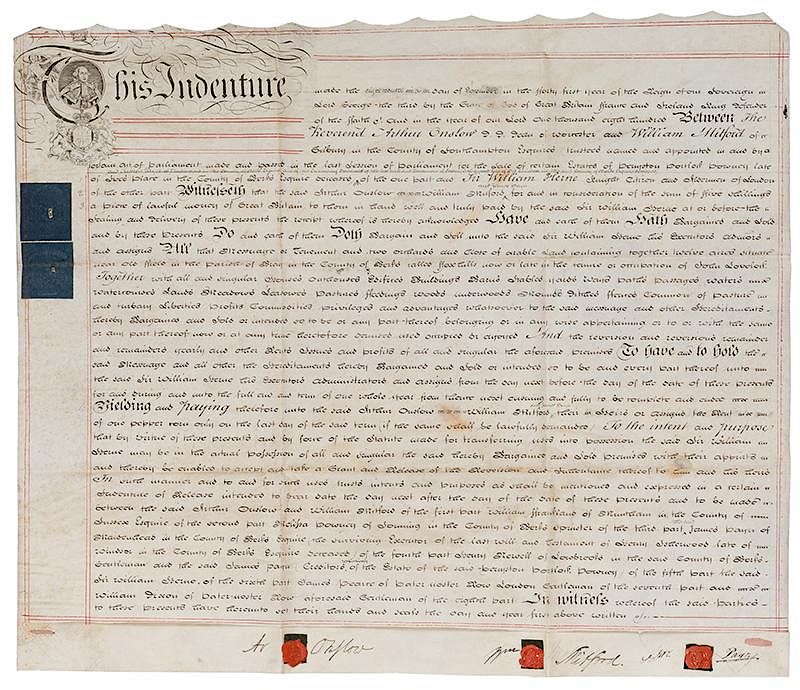 This Indenture
made the day of in the fforty first year of the Reign of our Sovereign
Lord George the third by the Grace of God of Great Britain ffrance and Ireland King defender
of the ffaith &c. and in the year of our Lord One thousand eight hundred Between The
Reverend Arthur Onslow D.D. Dean of Worcester and William Mitford of
Gilbury in the County of Southampton Esquire trustees named and appointed in and by a
certain act of Parliament made and passed in the last Session of Parliament for the sale of certain Estates of Penyston Portlock Powney late
of Ives Place in the County of Berks Esquire deceased of the one part and Sir William Herne Knight Citizen and Alderman of London
of the other part Witnesseth that the said Arthur Onslow William Mitford for and in consideration of the sum of five shillings
a piece of lawful money of Great Britain to them in hand well and truly paid by the said Sir William Herne at or before the
sealing and delivery of these presents the receipt whereof is hereby acknowledged Have and each of them Hath Bargained and Sold
and by these Presents Do and each of them Doth Bargain and Sell unto the said Sir William Herne his Executors Admors
and assigns All that Messuage or Tenement and two orchards and Close of arable Land containing together twelve acres situate
near in the parish of Bray in the County of Berks called now or late in the tenure or occupation of John Lovelock
Together with all and singular Houses Outhouses Edifices Buildings Barns Stables yards Ways paths passages waters
watercourses Lands Meadows Leasowes Pastures ffeedings woods underwoods Mounds Ditches ffences Commons of pasture
and turbary Liberties Profits Commodities privileges and advantages whatsoever to the said messuage and other Hereditaments
hereby Bargained and Sold or intended so to be or any part thereof belonging or in any wise appertaining or to or with the same
or any part thereof now or at any time heretofore demised used occupied or enjoyed And the reversion and reversions remainder
and remainders yearly and other Rents Issues and profits of all and singular the aforesaid premises To have and to hold the
said Messuage and all other the Hereditaments hereby Bargained and Sold or intended so to be and every part thereof unto
the said Sir William Herne his Executors Administrators and assigns from the day next before the day of the date of these presents
for and during and unto the full end and term of one whole year from thence next ensuing and fully to be complete and ended
Yielding and Paying therefore unto the said Arthur Onslow William Mitford their Heirs or assigns the Rent
of one pepper corn only on the last day of the said term if the same shall be lawfully demanded To the intent and purpose
that by virtue of these presents and by force of the Statute made for transferring uses into possession the said Sir William
Herne may be in the actual possession of all and singular the said hereby Bargained and Sold premises with their appurts
and thereby be enabled to accept and take a Grant and Release of the Reversion and Inheritance thereof to him and his heirs
In such manner and to and for such uses trusts intents and purposes as shall be mentioned and expressed in a certain
Indenture of Release intended to bear date the day next after the day of the date of these presents and to be made
between the said Arthur Onslow and William Mitford of the first part William of in the County of
Sussex Esquire of the second part Melissa Powney of Sonning in the County of Berks Spinster of the third part James Payn of
Maidenhead in the County of Berks Esquire the surviving Executor of the last will and testament of late of
Windsor in the County of Berks Esquire deceased of the fourth part of Lowbrooks in the said County of Berks
Gentleman and the said James Payn Creditors of the Estate of the said Penyston Portlock Powney of the fifth part the said
Sir William Herne of the sixth part James Pearce of Pater noster Row London Gentleman of the seventh part and
William Dixon of Pater-noster Row aforesaid Gentleman of the eighth part In witness whereof the said parties
to these presents have hereunto set their hands and seals the day and year first above written
Ar Onslow Wm Mitford Jas Payn